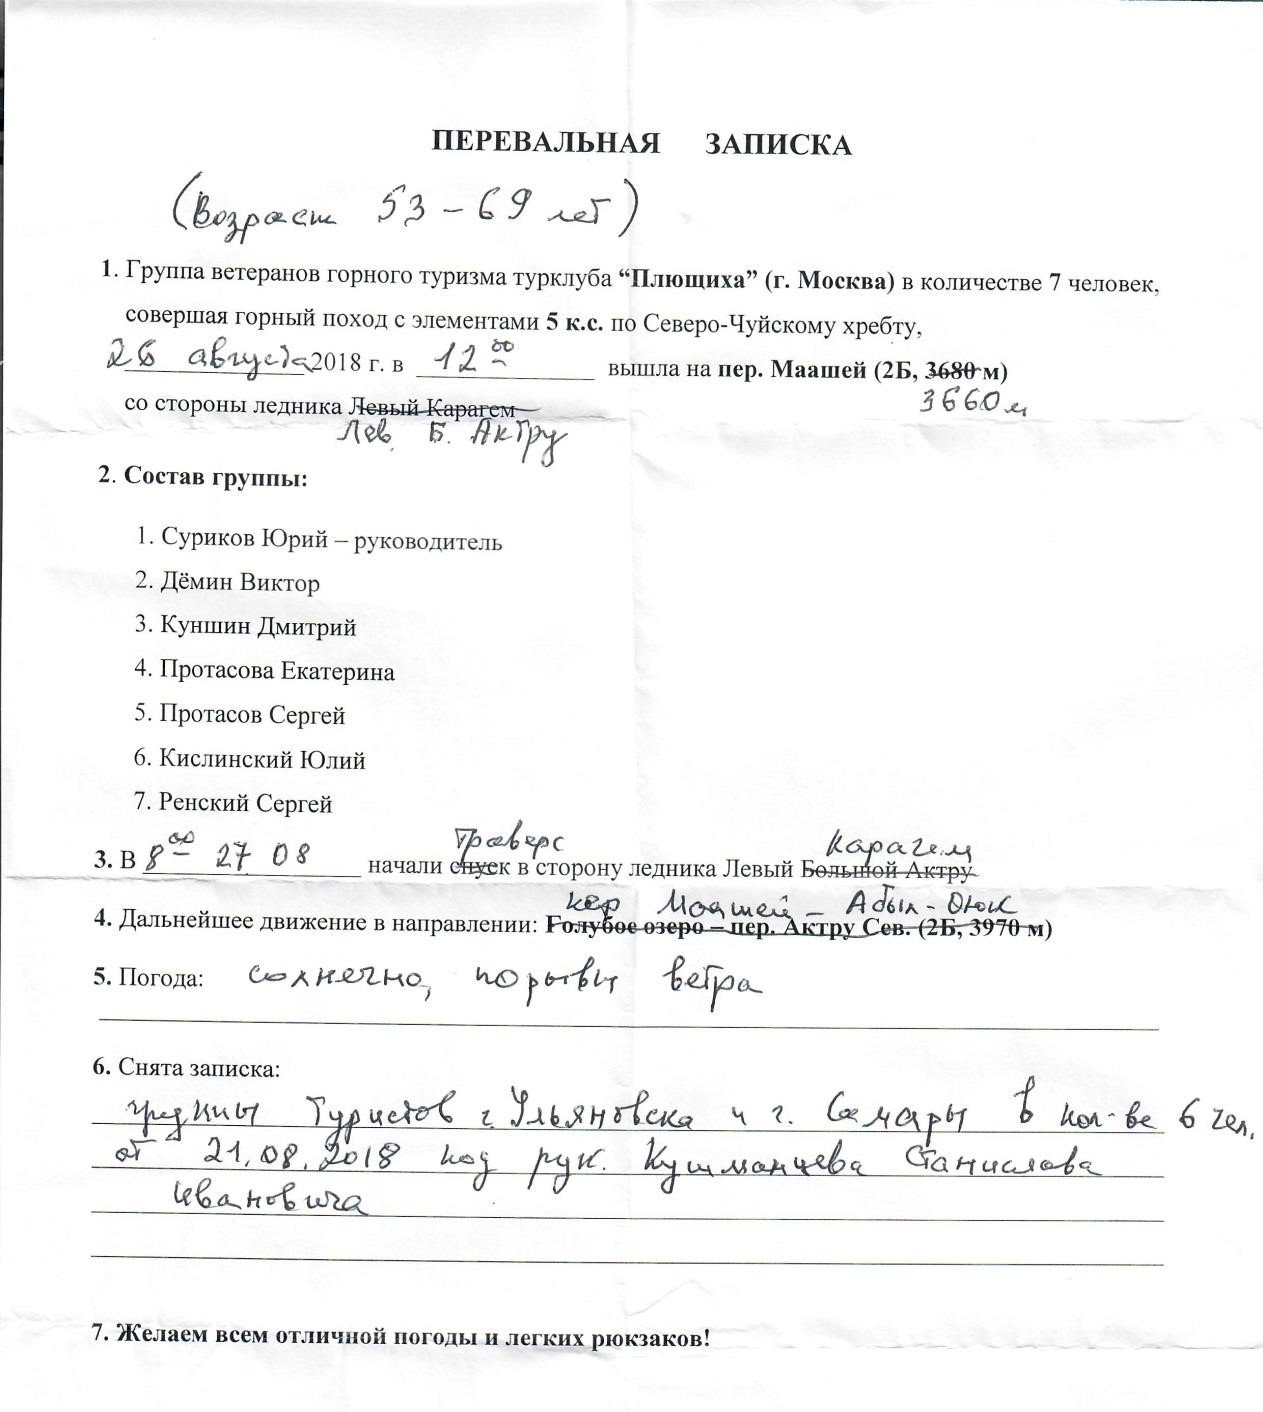 ПЕРЕВАЛЬНАЯ ЗАПИСКА
(Возраст 53 – 69 лет)
1. Группа ветеранов горного туризма турклуба “Плющиха” (г. Москва) в количестве 7 человек,
совершая горный поход с элементами 5 к.с. по Северо-Чуйскому хребту,
26 августа 2018 г. в 12 00 вышла на пер. Маашей (2Б, 3680 м)
3660 м
со стороны ледника Левый Карагем
Лев. Б. Актру
2. Состав группы:
1. Суриков Юрий – руководитель
2. Дёмин Виктор
3. Куншин Дмитрий
4. Протасова Екатерина
5. Протасов Сергей
6. Кислинский Юлий
7. Ренский Сергей
траверс Карагем
3. В 8 00 27 08 начали спуск в сторону ледника Левый Большой Актру
пер Маашей – Абыл-Оюк
4. Дальнейшее движение в направлении: Голубое озеро – пер. Актру Сев. (2Б, 3970 м)
5. Погода: солнечно, порывы ветра
6. Снята записка:
группы туристов г. Ульяновска и г. Самары в кол-ве 6 чел.
от 21.08.2018 под рук. Кушманцева Станислава
Ивановича
7. Желаем всем отличной погоды и легких рюкзаков!